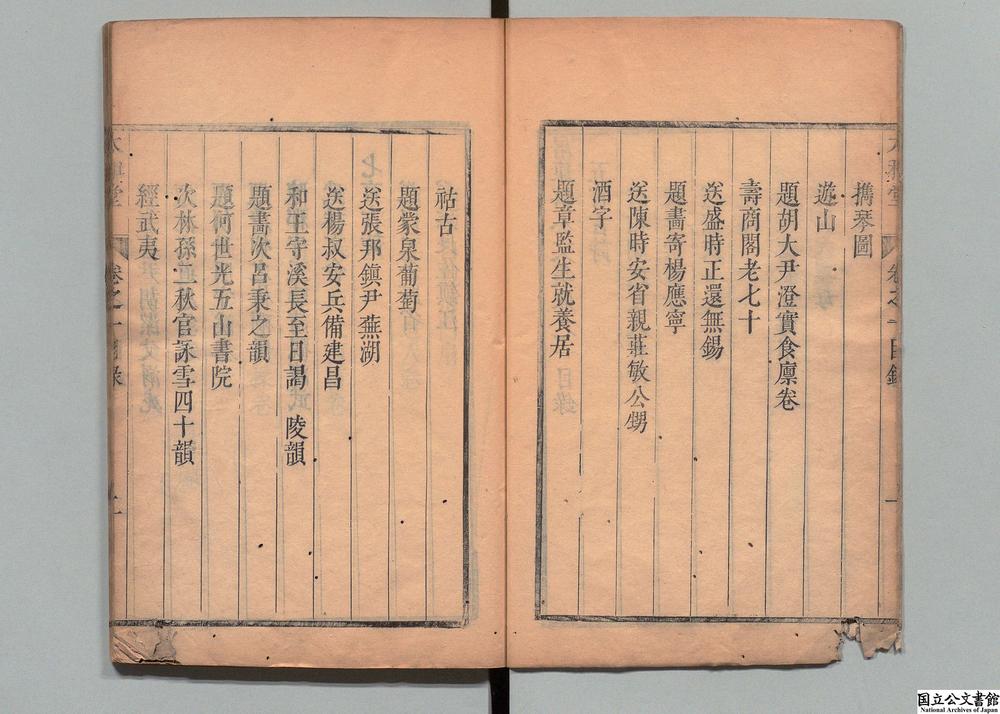 攜琴圖
遊山
題胡大尹澄實食廩卷
壽商閣老七十
送盛時正還無錫
題畵寄楊應寧
送陳時安省親莊敏公甥
酒字
題章監生就養居
祜古
題蒙泉葡萄
送張邦鎮尹蕪湖
送楊叔安兵備建昌
和王守溪長至日謁 陵韻
題畵次呂秉之韻
題何世光五山書院
次林孫二秋官詠雪四十韻
經武夷
国立公文書館
National Archives of Japan